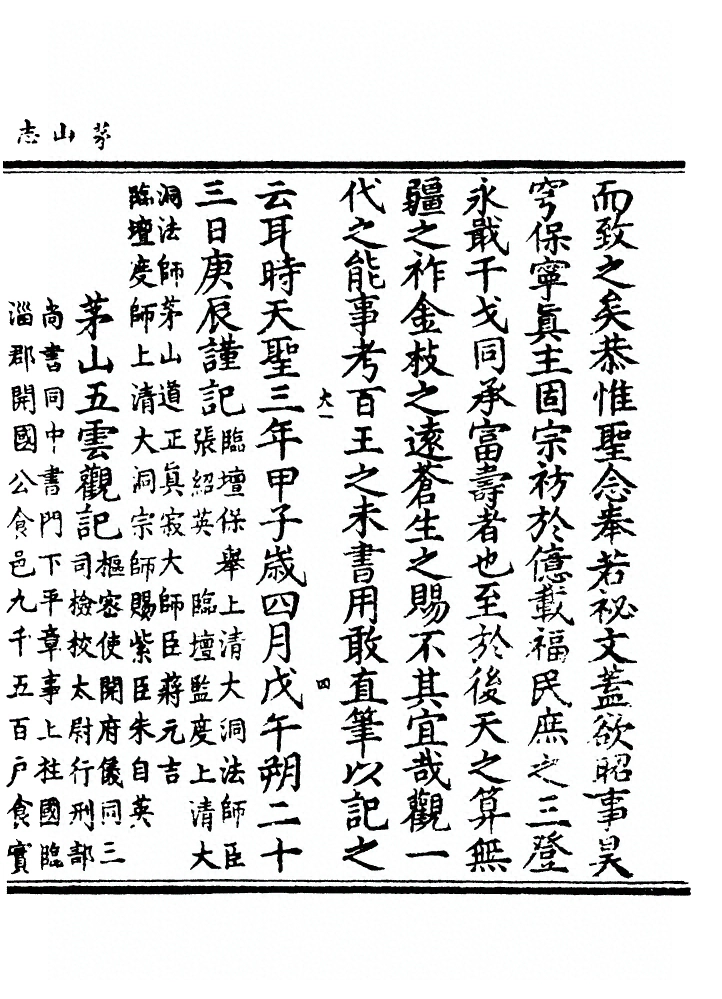 茅山志
而致之矣恭惟聖念奉若祕文蓋欲昭事昊
穹保寧眞主固宗祊於億載福民庶之三登
永戢干戈同承富壽者也至於後天之算無
疆之祚金枝之遠蒼生之賜不其宜哉觀一
代之能事考百王之未書用敢直筆以記之
大一
四
云耳時天聖三年甲子歲四月戊午朔二十
三日庚辰謹記臨壇保舉上清大洞法師臣
張紹英 臨壇監度上清大
洞法師茅山道正眞寂大師臣蔣元吉
臨壇度師上清大洞宗師賜紫臣朱自英
茅山五雲觀記樞密使開府儀同三
司檢校太尉行刑部
尚書同中書門下平章事上柱國臨
淄郡開國公食邑九千五百戶食實